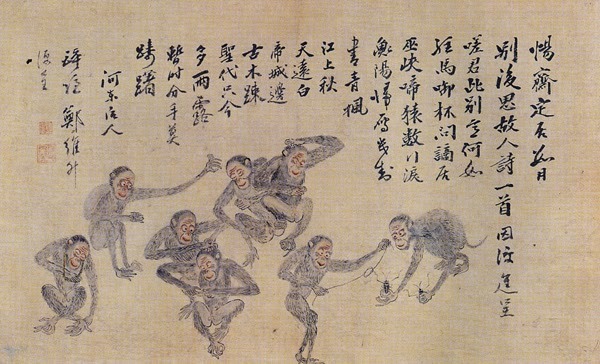 惕齋定居日
別後思故人詩一首因進呈
嗟君此別意何如
駐馬啣杯問謫居
巫峽啼猿數行淚
衡陽歸雁幾封
書青楓
江上秋
天遠白
帝城邊
古木疎
聖代只今
多雨露
暫時分手莫
躊躇
河東後人
鄭維升